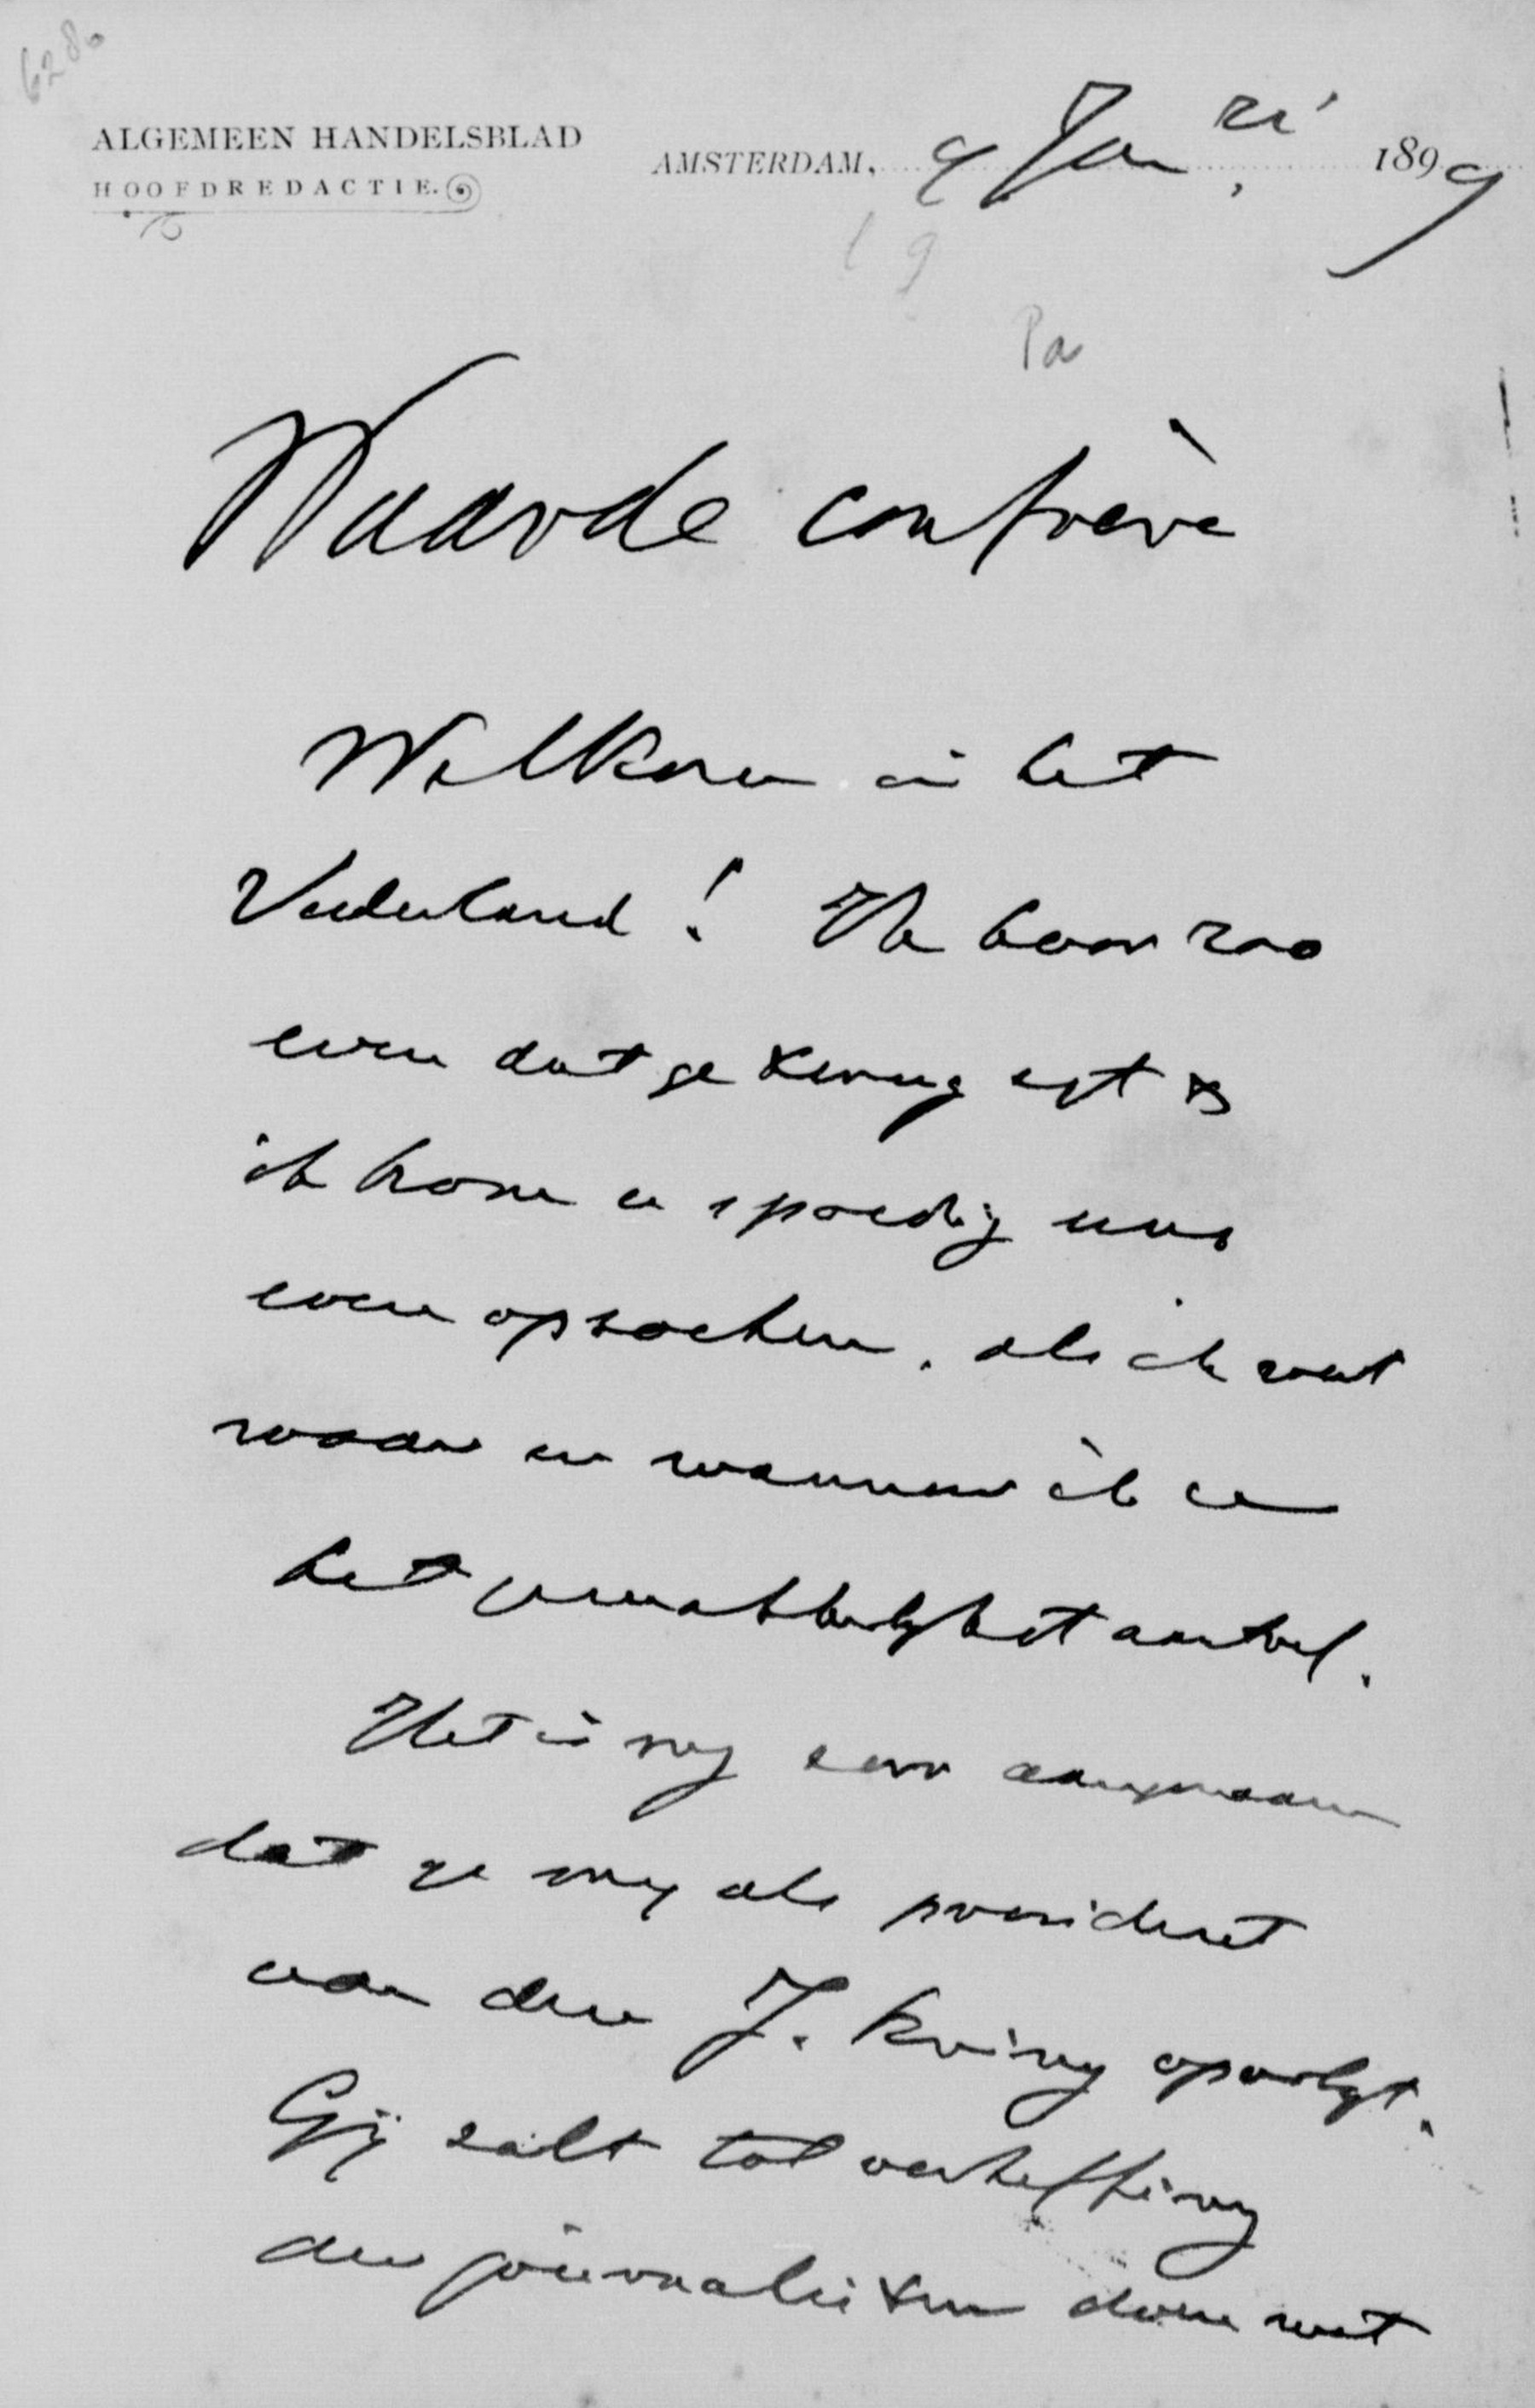 6280
ALGEMEEN HANDELSBLAD
HOOFDREDACTIE.
AMSTERDAM, 9 Jan.ri 1899
19
Pa
Waarde confrère
Welkom in het
Vaderland! Ik hoor zoo
even dat ge terug zyt &
ik kom u spoedig eens
even opzoeken, als ik weet
waar en wanneer ik u
het gemakkelykst aantref.
Het is my zeer aangenaam
dat ge my als president
van den J. kring opvolgt.
Gij zult tot verheffing
der journalisten doen wat